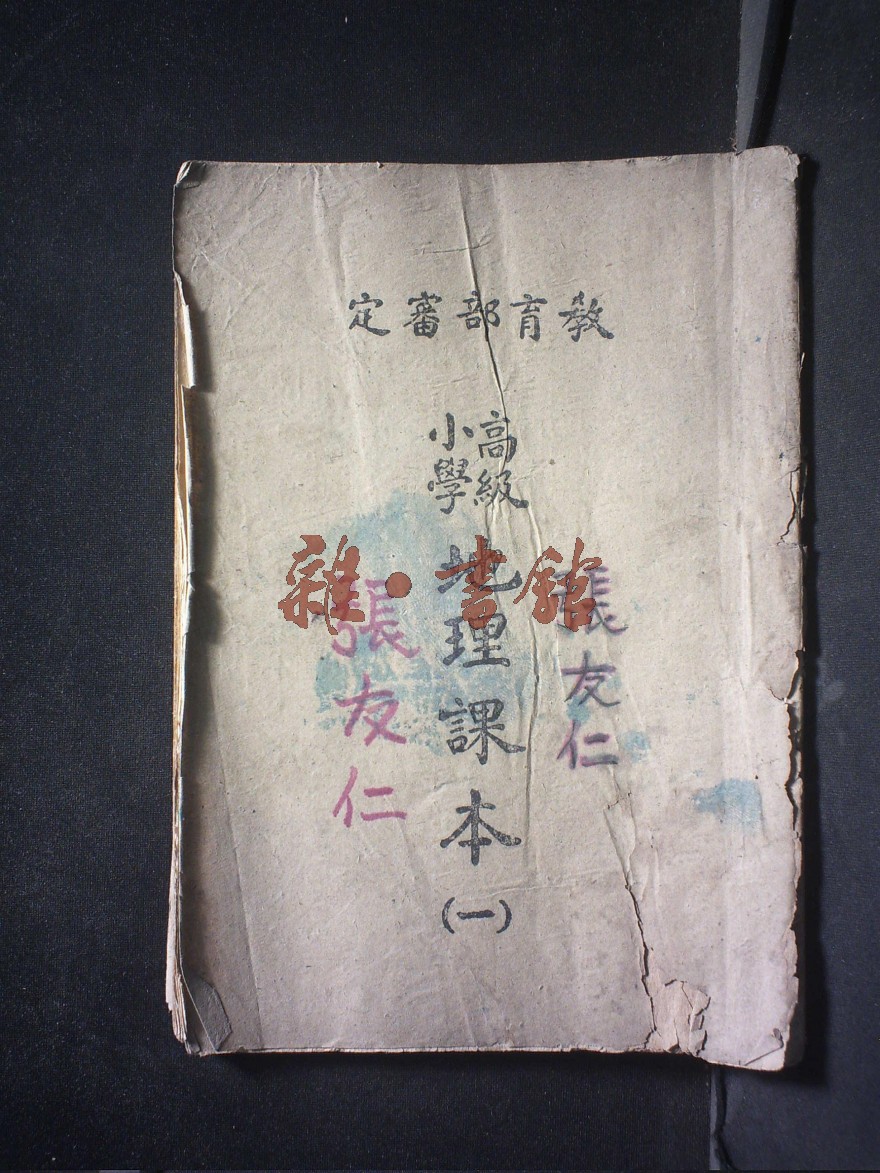 教育部審定
高級
小學
地理課本
(一)
張友仁
張友仁
雜·書館